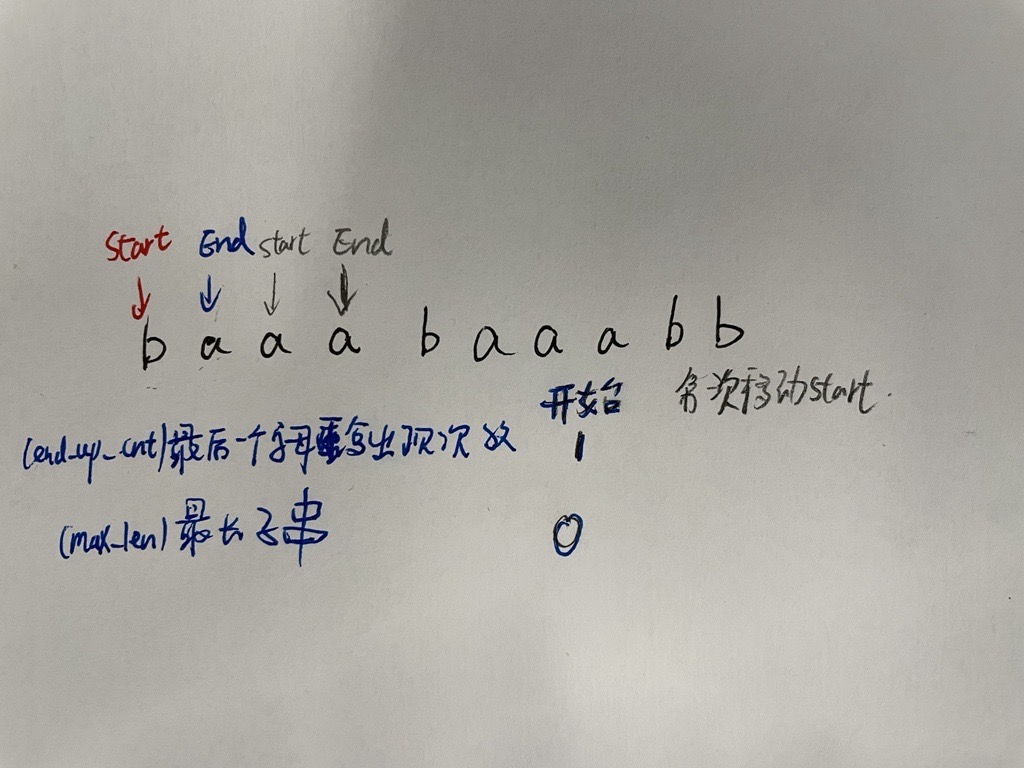 Start End start End
b a a a b a a a b b
开始 多次移动start.
(end_up_cnt)最后一个字母重复出现次数 1
(max_len)最长子串 0